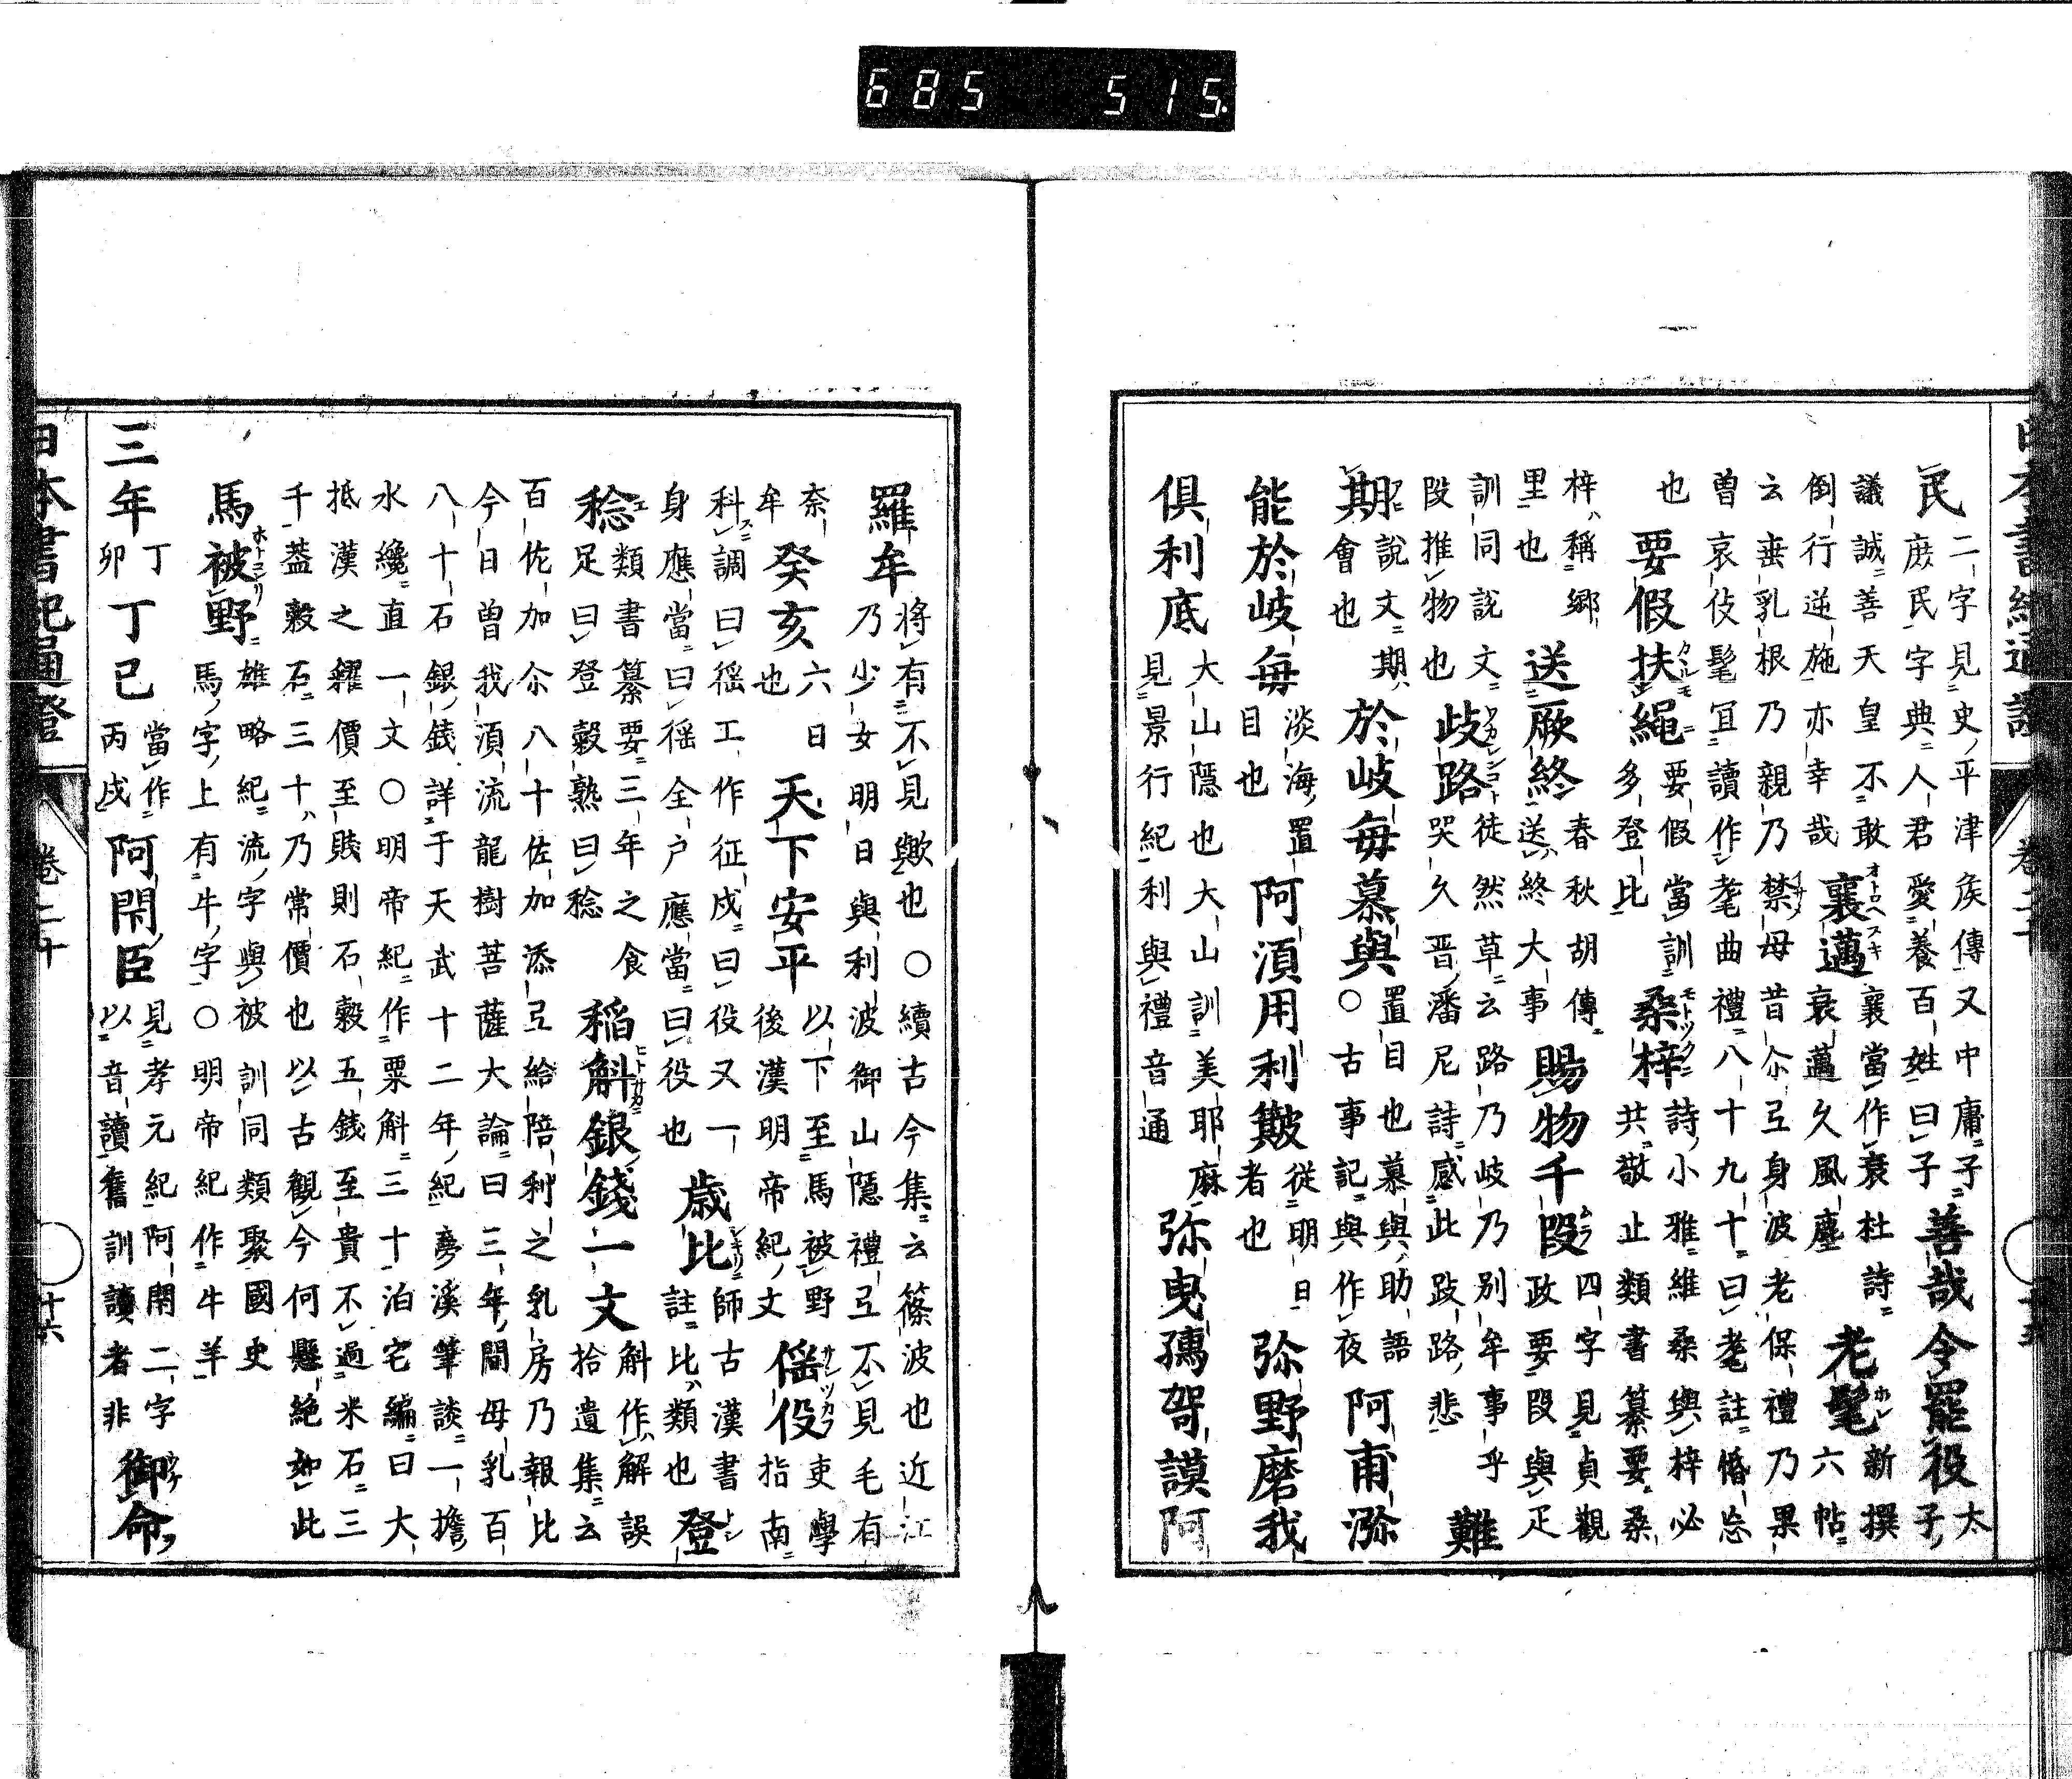 685 515
民二字見史平津侯傳又中庸子
庶民字典人君愛養百姓曰子善哉令罷役太
子
議誠善天皇不敢
倒行逆施亦幸哉襄邁襄當作衰杜詩
衰邁久風塵老髦新撰
六帖
云垂乳根乃親乃禁母昔尒弖身波老保禮乃果
曽哀伎髦冝讀作耄曲禮八十九十曰耄註惛忘
也要假扶繩要假當訓
多登比桑梓詩小雅維桑與梓必
共敬止類書纂要桑
梓稱郷
里也送厥終春秋胡傳
送終大事賜物千段四字見貞觀
政要段與疋
訓同說文
段推物也歧路徒然草云路乃岐乃別牟事乎
哭久晋潘尼詩感此跂路悲難
期說文期
會也於岐毎慕與置目也慕與助語
○古事記與作夜阿甫瀰
能於岐毎淡海置
目也阿湏用利簸從明日
者也弥野磨我
倶利底大山隱也大山訓美耶麻
見景行紀利與禮音通弥曳孺哿謨阿
羅牟將有不見歟也○續古今集云篠波也近江
乃少女明日與利波御山隱禮弖不見毛有
奈
牟癸亥六日
也天下安平以下至馬被野
後漢明帝紀文傜役吏學
指南
科調曰徭工作征戍曰役又一
身應當曰徭全户應當曰役也歲比師古漢書
註比類也登
稔類書纂要三年之食
足曰登穀熟曰稔稲斛銀錢一文斛作解誤
拾遺集云
百佐加尒八十佐加添弖給陪利之乳房乃報比
今日曽我湏流龍樹菩薩大論曰三年間母乳百
八十石銀錢詳于天武十二年紀夢溪筆談一擔
水纔直一文○明帝紀作粟斛三十泊宅編曰大
抵漢之糴價至賎則石穀五錢至貴不過米石三
千蓋穀石三十乃常價也以古觀今何懸絶如此
馬被野雄略紀流字與被訓同類聚國史
馬字上有牛字○明帝紀作牛羊
三年丁
卯丁巳當作
丙戌阿閇臣見孝元紀阿閇二字
以音讀舊訓讀者非御命
日本書紀通證 卷二十 十六